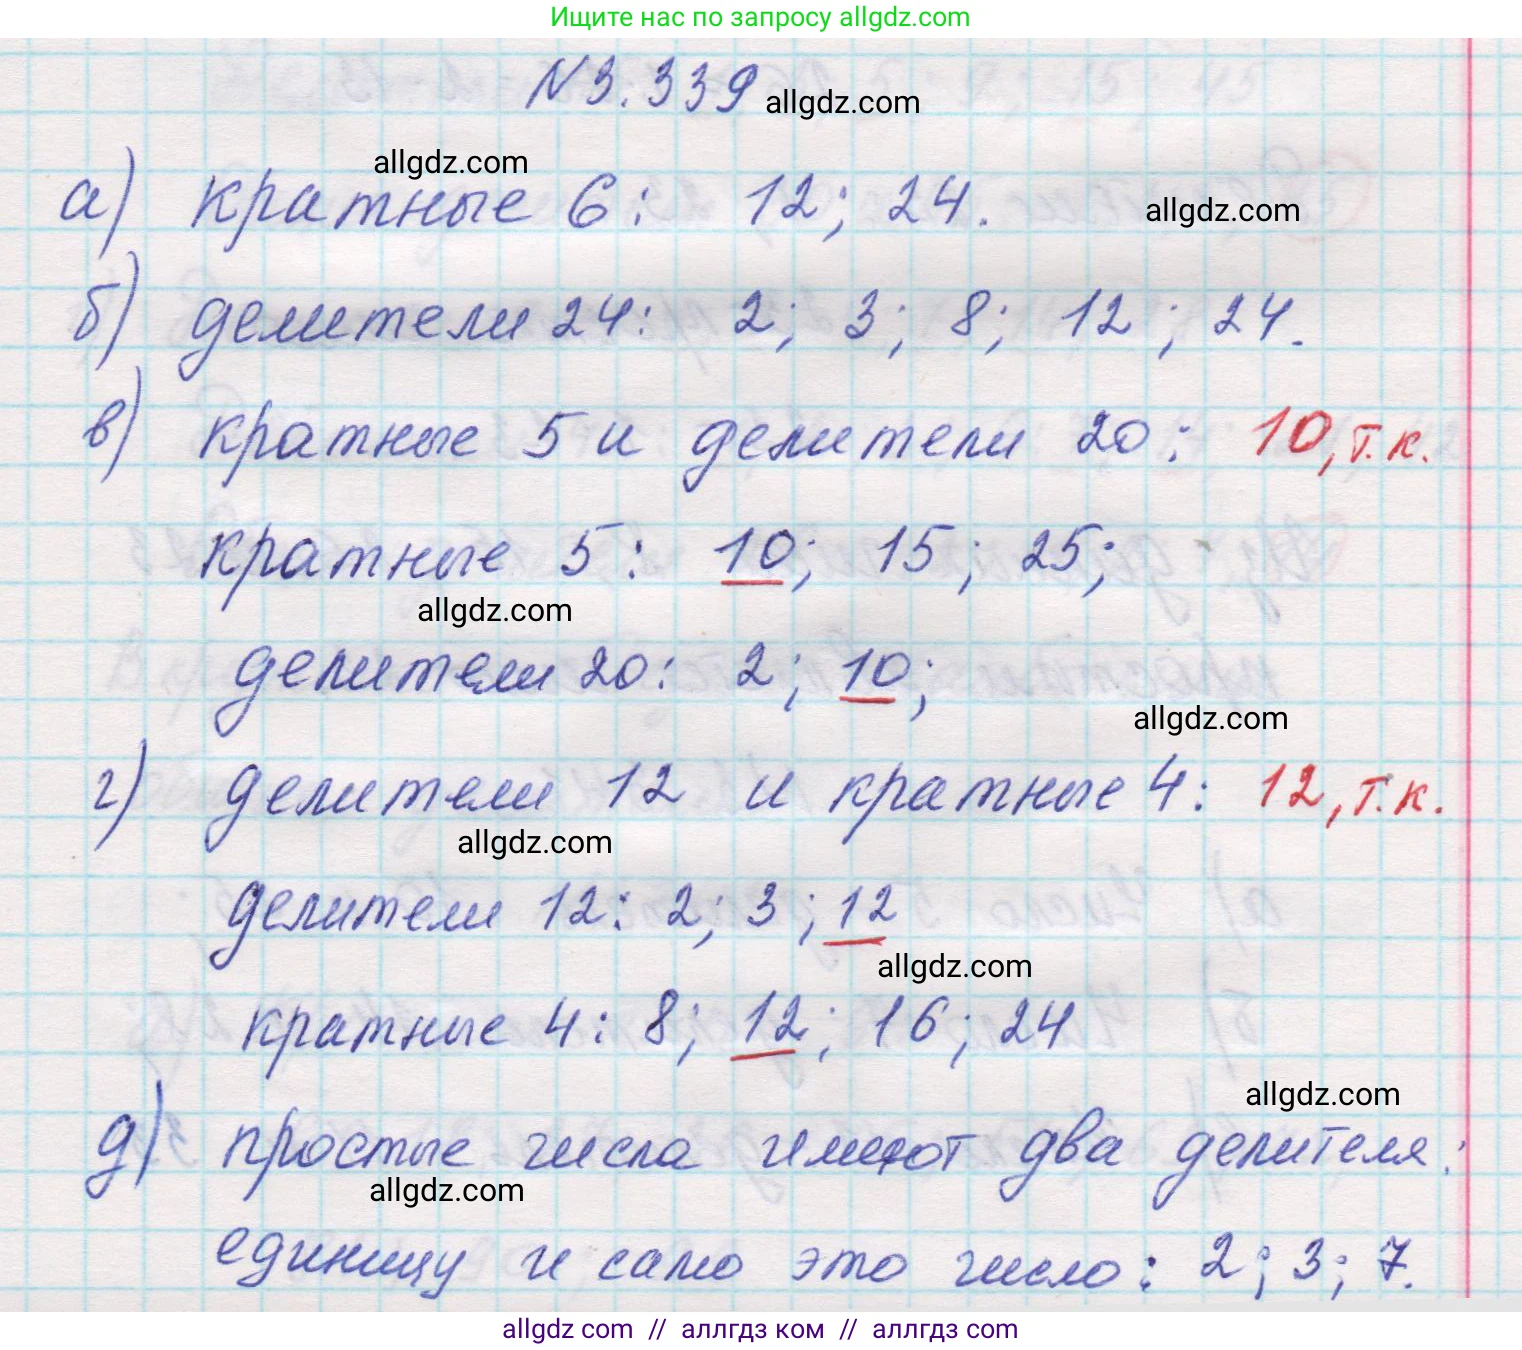 Ищите нас по запросу allgdz.com
N3.339 allgdz.com
allgdz.com
а) кратные 6: 12; 24. allgdz.com
б) делители 24: 2; 3; 8; 12; 24.
в) кратные 5 и делители 20: 10, т.к.
кратные 5: 10; 15; 25;
allgdz.com
делители 20: 2; 10;
allgdz.com
г) делители 12 и кратные 4: 12, т.к.
allgdz.com
делители 12: 2; 3; 12
allgdz.com
кратные 4: 8; 12; 16; 24
allgdz.com
д) простые числа имеют два делителя:
allgdz.com
единицу и само это число: 2; 3; 7.
allgdz com // аллгдз ком // аллгдз com